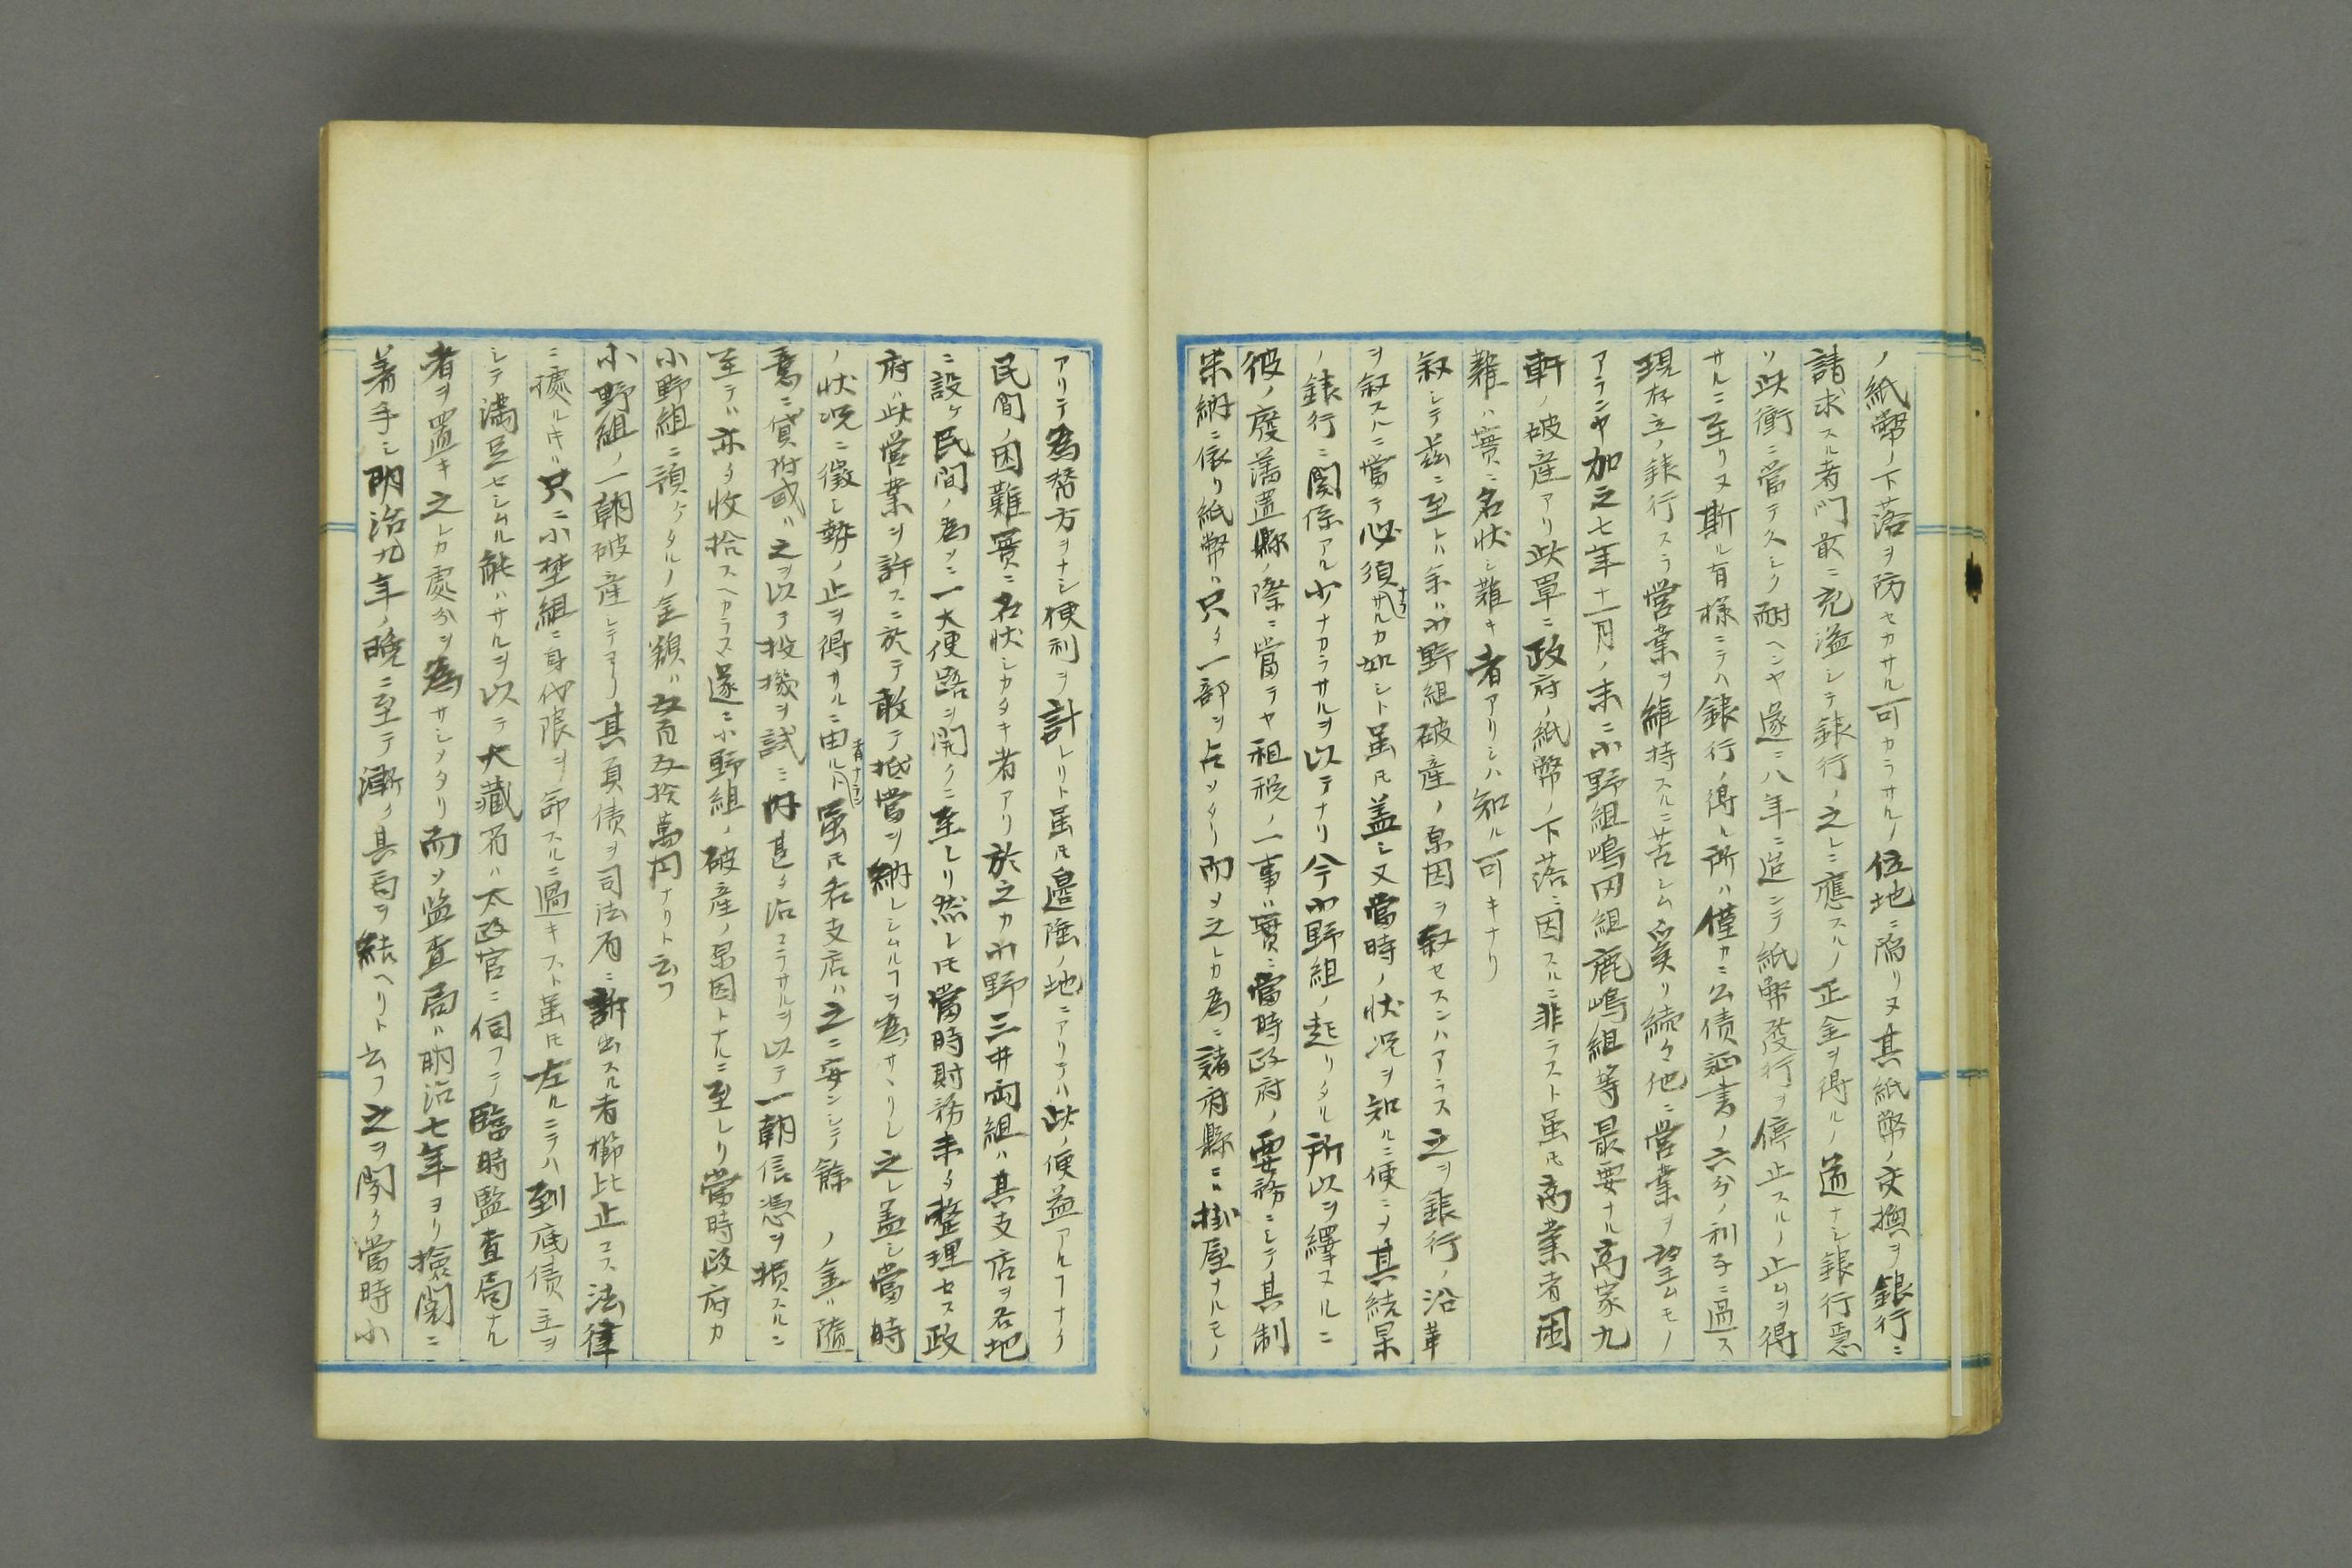 ノ紙幣ノ下落ヲ防セカサル可カラサルノ位地ニ陥リヌ其紙幣ノ交換ヲ銀行ニ
請求スル者門前ニ充溢シテ銀行ノ之レニ應スルノ正金ヲ得ルノ道ナシ銀行悪
ソ此衝ニ當テ久シク耐ヘンヤ遂ニ八年ニ迨ンテ紙幣發行ヲ停止スルノ止ムヲ得
サルニ至リヌ斯ル有様ニテハ銀行ノ得ル所ハ僅カニ公債証書ノ六分ノ利子ニ過ス
現存立ノ銀行スラ営業ヲ維持スルニ苦シム 続々他ニ営業ヲ望ムモノ
アランヤ加之七年十一月ノ末ニ小野組嶋田組鹿嶋組等最要ナル商家九
軒ノ破産アリ此罪ニ政府ノ紙幣ノ下落ニ因スルニ非ラスト虽𪜈商業者困
難ハ實ニ名状シ難キ者アリシハ知ル可キナリ
叙シテ茲ニ至レハ余ハ小野組破産ノ原因ヲ叙セスンハアラス之ヲ銀行ノ沿革
ヲ叙スルニ當テ必須ナラサルカ如シト虽𪜈盖シ又當時ノ状况ヲ知ルニ便ニヲ其結果
ノ銀行ニ関係アル少ナカラサルヲ以テナリ今小野組ノ起リタル所以ヲ繹ヌルニ
彼ノ廢藩置縣ノ際ニ當テヤ租税ノ一事ハ實ニ當時政府ノ要務ニシテ其制
米納ニ依リ紙幣ハ只タ一部ヲ占メタリ而メ之レカ為ニ諸府縣ニ掛屋ナルモノ
アリテ為替方ヲナシ便利ヲ計レリト虽𪜈邉陲ノ地ニアリテハ此ノ便益アルヿナク
民間ノ困難實ニ名状シカタキ者アリ於之カ小野三井両組ハ其支店ヲ各地
ニ設ケ民間ノ為メニ一大便路ヲ開クニ至レリ然レ𪜈當時財務未タ整理セス政
府ハ此営業ヲ許スニ於テ敢テ抵當ヲ納レシムルヿヲ為サヽリシ之レ盖シ當時
ノ状况ニ徴シ勢ノ止ヲ得サルニ由ル者ナラント虽𪜈各支店ハ之ニ安ンシテ餘ノ金ハ隨
意ニ貸附或ハ之ヲ以テ投機ヲ試ミ内甚タ治マラサルヲ以テ一朝信憑ヲ損スルニ
至テハ亦タ收拾スヘカラス遂ニ小野組ノ破産ノ原因トナルニ至レリ當時政府カ
小野組ニ預ケタルノ金額ハ五百五拾萬円ナリト云フ
小野組ノ一朝破産シテヨリ其負債ヲ司法省ニ訴出スル者櫛比止マス法律
ニ據ルキハ只ニ小野組ニ身代限ヲ命スルニ過キスト虽𪜈左ルニテハ到底債主ヲ
シテ満足セシムル能ハサルヲ以テ大藏省ハ太政官ニ伺フテ臨時監査局ナル
者ヲ置キ之レカ處分ヲ為サシメタリ而メ監査局ハ明治七年ヨリ検閲ニ
着手シ明治九年ノ晩ニ至テ漸ク其局ヲ結ヘリト云フ之ヲ聞ク當時小